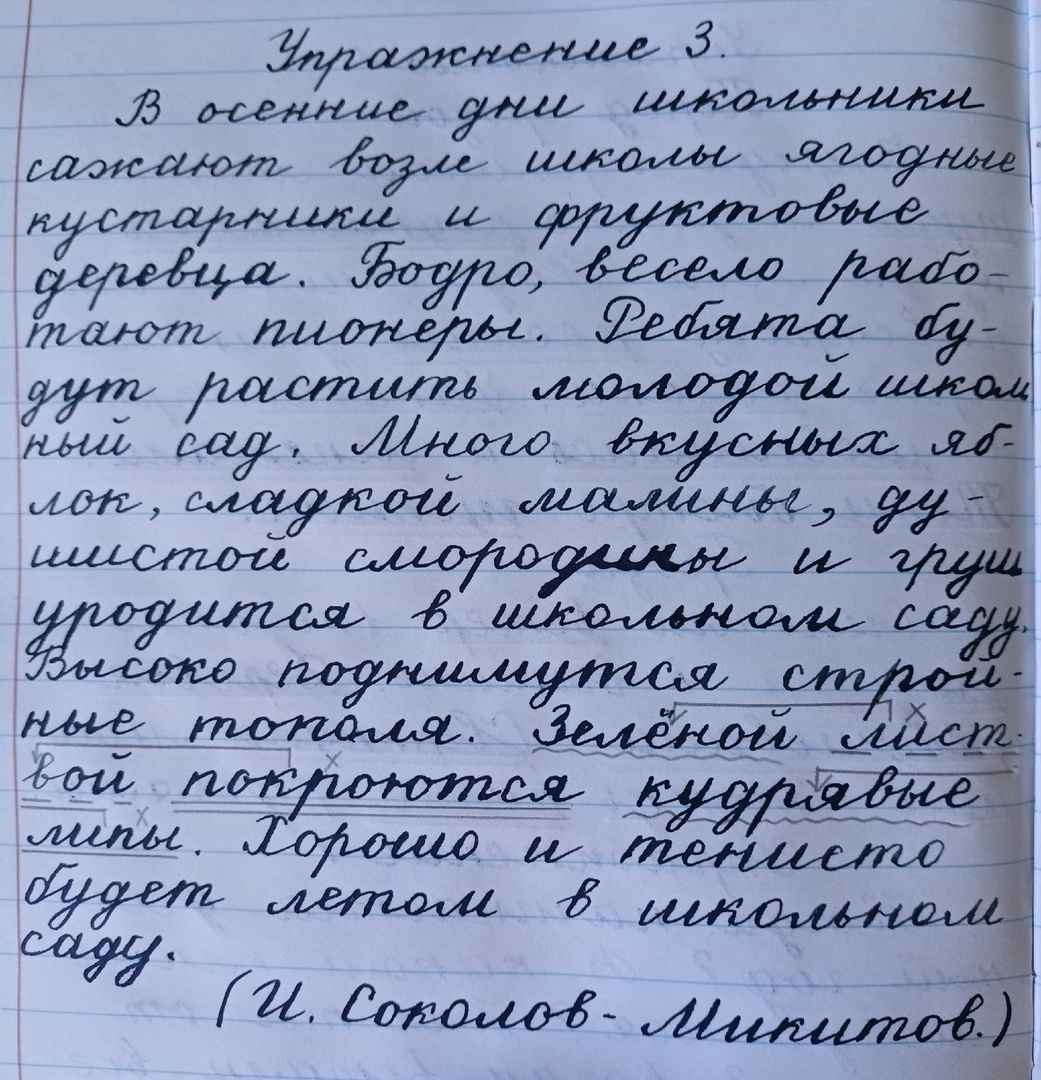 Упражнение 3.
В осенние дни школьники
сажают возле школы ягодные
кустарники и фруктовые
деревца. Бодро, весело рабо-
тают пионеры. Ребята бу-
дут растить молодой школь
ный сад. Много вкусных яб-
лок, сладкой малины, ду-
шистой смородины и груш
уродится в школьном саду.
Высоко поднимутся строй-
ные тополя. Зелёной лист-
вой покроются кудрявые
липы. Хорошо и тенисто
будет летом в школьном
саду.
(И. Соколов-Микитов.)